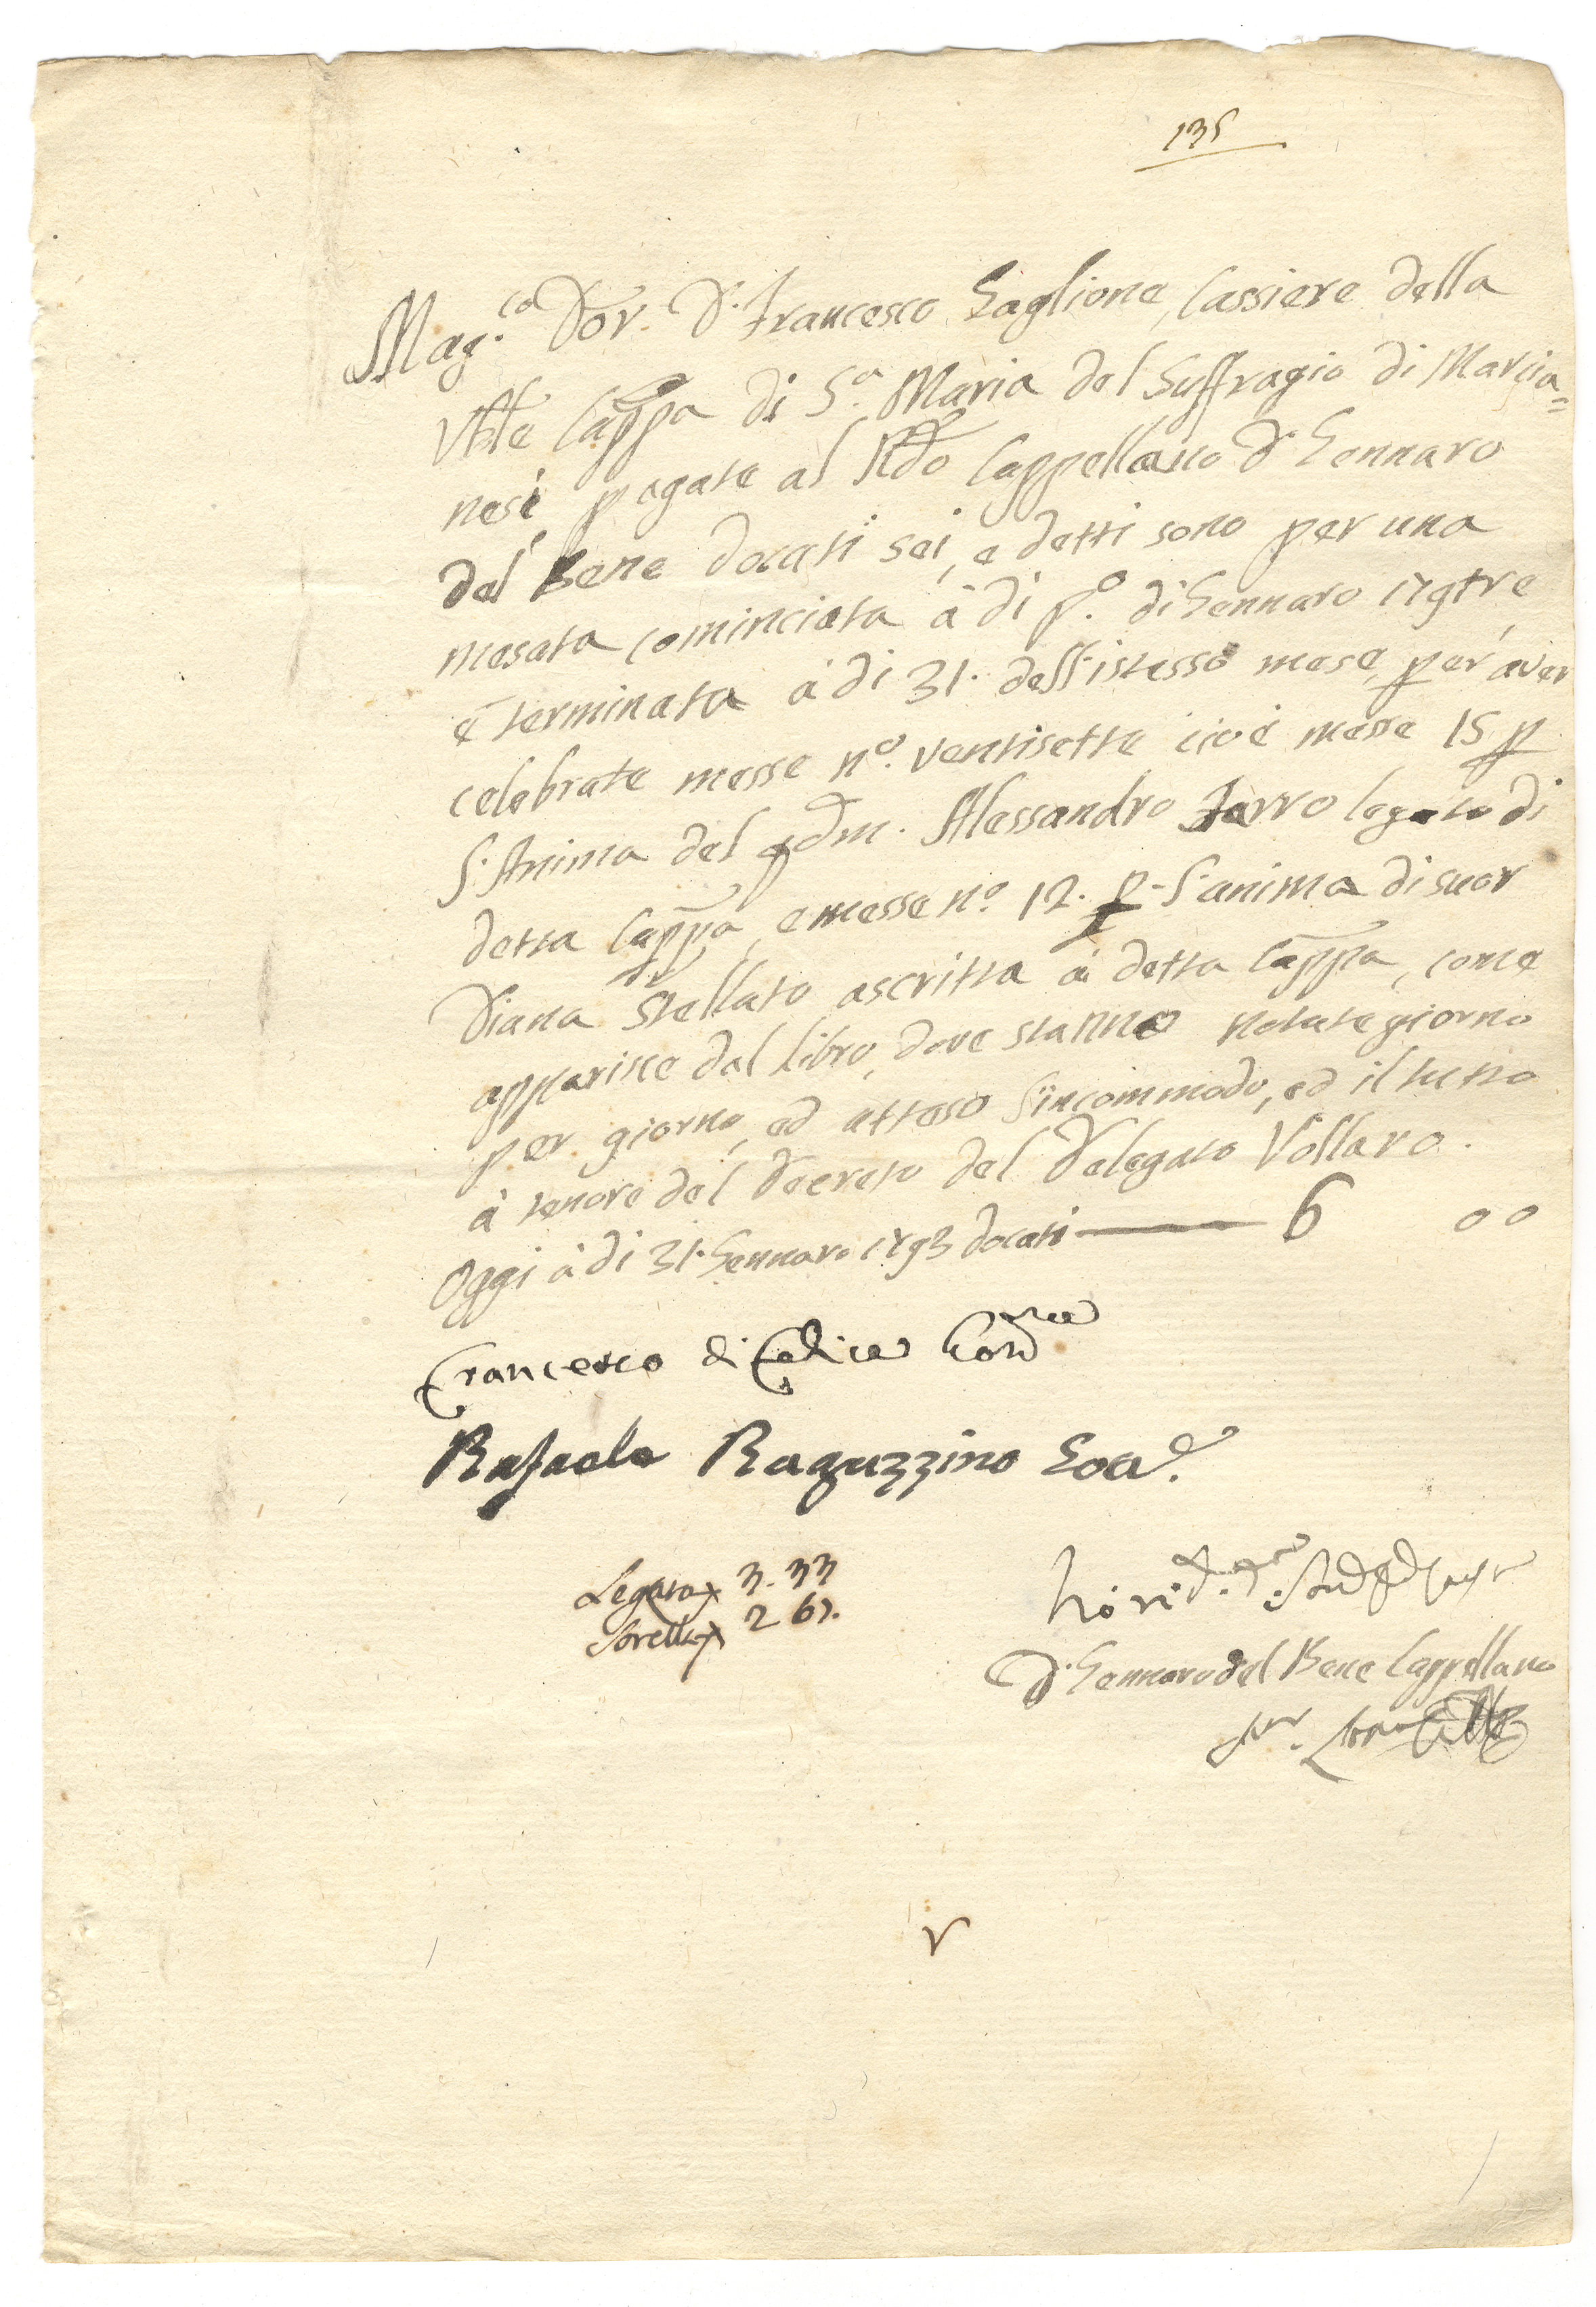 135
Mag.co Dor. D. Francesco Gaglione, Cassiere della
Vble Cappa di S.a Maria del Suffragio di Marcia=
nesi, pagate al Rdo Cappellano D. Gennaro
del Bene docati sei, e detti sono per una
mesata cominciata à dì p.o di Gennaro 179tre,
e terminata à dì 31. dell'istesso mese, per aver
celebrate messe n.o ventisette cioè messe 15 p
l'Anima del qdm. Alessandro Farro legato di
detta Cappa, e messe n.o 12. p l'anima di suor
Diana Stellato ascritta à detta Cappa, come
apparisce dal libro, dove stanno notate giorno
per giorno, ed atteso l'incommodo, ed il tutto
à tenore del Decreto del Delegato Vollaro.
Oggi à dì 31. Gennaro 1793 docati — 6 00
Francesco di Felice
Rafaele Raguzzino
Legato 3. 33
Sorella 2 67.
D. Gennaro del Bene Cappellano